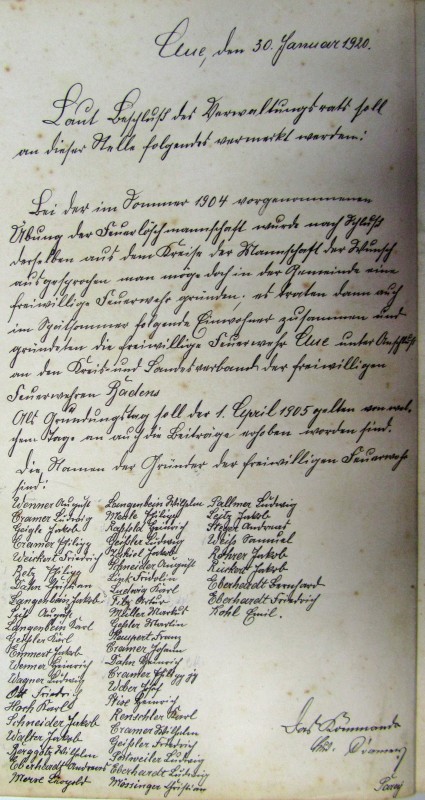 Aue, den 30. Januar 1920.
Laut Beschluß des Verwaltungsrats soll
an dieser Stelle folgendes vermerkt werden:
Bei der im Sommer 1904 vorgenommenen
Übung der Feuerlöschmannschaft wurde nach Schluß
derselben aus dem Kreise der Mannschaft der Wunsch
ausgesprochen man möge doch in der Gemeinde eine
freiwillige Feuerwehr gründen. es traten dann auch
im Spätsommer folgende Einwohner zusammen und
gründeten die freiwillige Feuerwehr Aue unter Anschluß
an den Kreis- und Landesverband der freiwilligen
Feuerwehren Badens
Als Gründungstag soll der 1. April 1905 gelten von wel-
chem Tage an auch die Beiträge erhoben worden sind.
Die Namen der Gründer der freiwilligen Feuerwehr
sind:
Wenner August Langenbein Wilhelm Sallmer Ludwig
Cramer Ludwig Philipp Jakob
Geigle Jakob Heinrich Andreas
Cramer Philipp Geißler Ludwig Weiß Samuel
Friedrich Jakob Rohrer Jakob
Philipp Schneider August Rückert Jakob
Christian Link Fridolin Eberhardt Bernhard
Langenbein Jakob Ludwig Karl Eberhardt Friedrich
August Artur Kohl Emil.
Langenbein Karl Müller Markus
Geißler Karl Martin
Emmert Jakob Franz
Wenner Heinrich Cramer Johann
Wagner Ludwig Dahn Heinrich
Ott Friedrich Cramer Philipp
Horst Karl Weber
Schneider Jakob Heinrich
Walter Jakob Renschler Karl
Wilhelm Cramer Wilhelm
Eberhardt Andreas Geißler Friedrich
Leopold Postweiler Ludwig
Eberhardt Ludwig
Mössinger Christian
Das Kommando